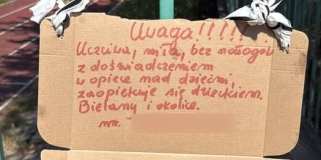 Uwaga!!!!!
Uczciwa, miła, bez nałogów
z doświadczeniem
w opiece nad dziećmi,
zaopiekuje się dzieckiem.
Bielany i okolice.
nr.